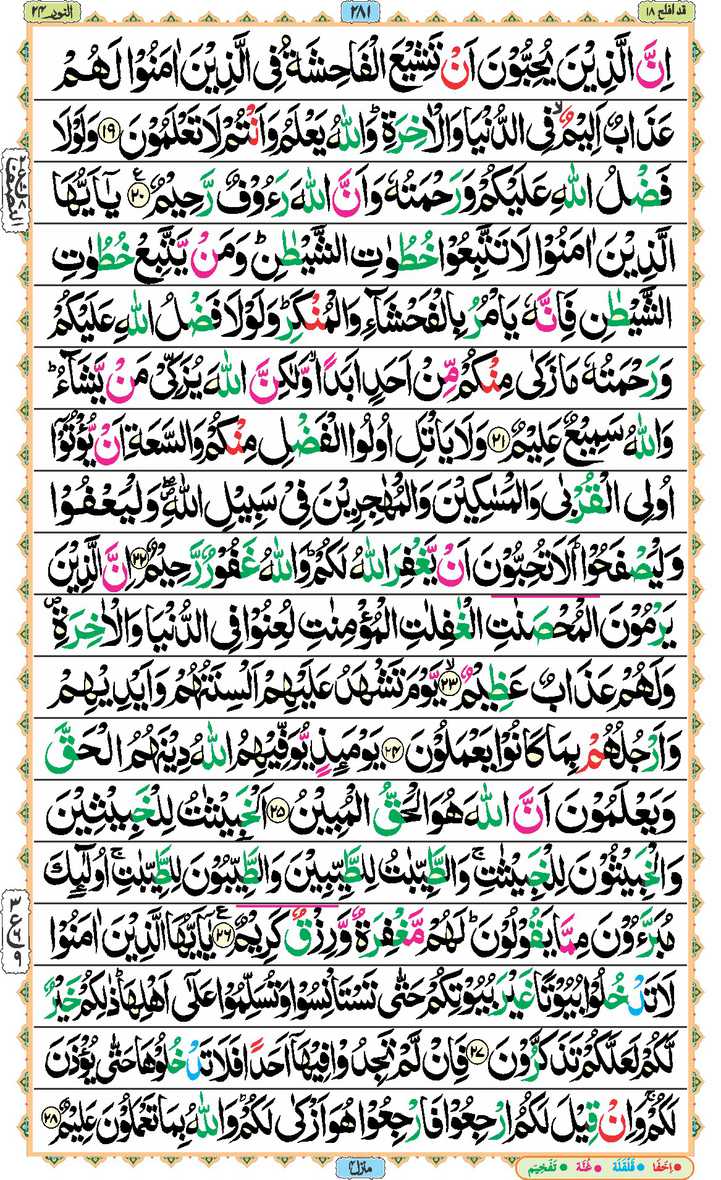 قد افلح ١٨
٢٨١
النور ٢٤
اِنَّ الَّذِيْنَ يُحِبُّوْنَ اَنْ تَشِيْعَ الْفَاحِشَةُ فِى الَّذِيْنَ اٰمَنُوْا لَهُمْ
عَذَابٌ اَلِيْمٌ ۙ فِى الدُّنْيَا وَالْاٰخِرَةِ ؕ وَاللّٰهُ يَعْلَمُ وَاَنْتُمْ لَا تَعْلَمُوْنَ ١٩ وَلَوْلَا
فَضْلُ اللّٰهِ عَلَيْكُمْ وَرَحْمَتُهٗ وَاَنَّ اللّٰهَ رَءُوْفٌ رَّحِيْمٌ ٢٠ ع يٰۤاَيُّهَا
الَّذِيْنَ اٰمَنُوْا لَا تَتَّبِعُوْا خُطُوٰتِ الشَّيْطٰنِ ؕ وَمَنْ يَّتَّبِعْ خُطُوٰتِ
الشَّيْطٰنِ فَاِنَّهٗ يَاْمُرُ بِالْفَحْشَآءِ وَالْمُنْكَرِ ؕ وَلَوْلَا فَضْلُ اللّٰهِ عَلَيْكُمْ
وَرَحْمَتُهٗ مَا زَكٰى مِنْكُمْ مِّنْ اَحَدٍ اَبَدًا ۙ وَّلٰكِنَّ اللّٰهَ يُزَكِّىْ مَنْ يَّشَآءُ ؕ
وَاللّٰهُ سَمِيْعٌ عَلِيْمٌ ٢١ وَلَا يَاْتَلِ اُولُوا الْفَضْلِ مِنْكُمْ وَالسَّعَةِ اَنْ يُّؤْتُوْۤا
اُولِى الْقُرْبٰى وَالْمَسٰكِيْنَ وَالْمُهٰجِرِيْنَ فِىْ سَبِيْلِ اللّٰهِ ۖ وَلْيَعْفُوْا
وَلْيَصْفَحُوْا ؕ اَلَا تُحِبُّوْنَ اَنْ يَّغْفِرَ اللّٰهُ لَكُمْ ؕ وَاللّٰهُ غَفُوْرٌ رَّحِيْمٌ ٢٢ اِنَّ الَّذِيْنَ
يَرْمُوْنَ الْمُحْصَنٰتِ الْغٰفِلٰتِ الْمُؤْمِنٰتِ لُعِنُوْا فِى الدُّنْيَا وَالْاٰخِرَةِ ۖ
وَلَهُمْ عَذَابٌ عَظِيْمٌ ۙ ٢٣ يَّوْمَ تَشْهَدُ عَلَيْهِمْ اَلْسِنَتُهُمْ وَاَيْدِيْهِمْ
وَاَرْجُلُهُمْ بِمَا كَانُوْا يَعْمَلُوْنَ ٢٤ يَوْمَئِذٍ يُّوَفِّيْهِمُ اللّٰهُ دِيْنَهُمُ الْحَقَّ
وَيَعْلَمُوْنَ اَنَّ اللّٰهَ هُوَ الْحَقُّ الْمُبِيْنُ ٢٥ اَلْخَبِيْثٰتُ لِلْخَبِيْثِيْنَ
وَالْخَبِيْثُوْنَ لِلْخَبِيْثٰتِ ۚ وَالطَّيِّبٰتُ لِلطَّيِّبِيْنَ وَالطَّيِّبُوْنَ لِلطَّيِّبٰتِ ۚ اُولٰٓئِكَ
مُبَرَّءُوْنَ مِمَّا يَقُوْلُوْنَ ؕ لَهُمْ مَّغْفِرَةٌ وَّرِزْقٌ كَرِيْمٌ ٢٦ ع يٰۤاَيُّهَا الَّذِيْنَ اٰمَنُوْا
لَا تَدْخُلُوْا بُيُوْتًا غَيْرَ بُيُوْتِكُمْ حَتّٰى تَسْتَاْنِسُوْا وَتُسَلِّمُوْا عَلٰٓى اَهْلِهَا ؕ ذٰلِكُمْ خَيْرٌ
لَّكُمْ لَعَلَّكُمْ تَذَكَّرُوْنَ ٢٧ فَاِنْ لَّمْ تَجِدُوْا فِيْهَاۤ اَحَدًا فَلَا تَدْخُلُوْهَا حَتّٰى يُؤْذَنَ
لَكُمْ ۚ وَاِنْ قِيْلَ لَكُمُ ارْجِعُوْا فَارْجِعُوْا هُوَ اَزْكٰى لَكُمْ ؕ وَاللّٰهُ بِمَا تَعْمَلُوْنَ عَلِيْمٌ ٢٨
منزل ٤
اِخفَا قَلْقَلَة غُنَّة تَفْخِيْم